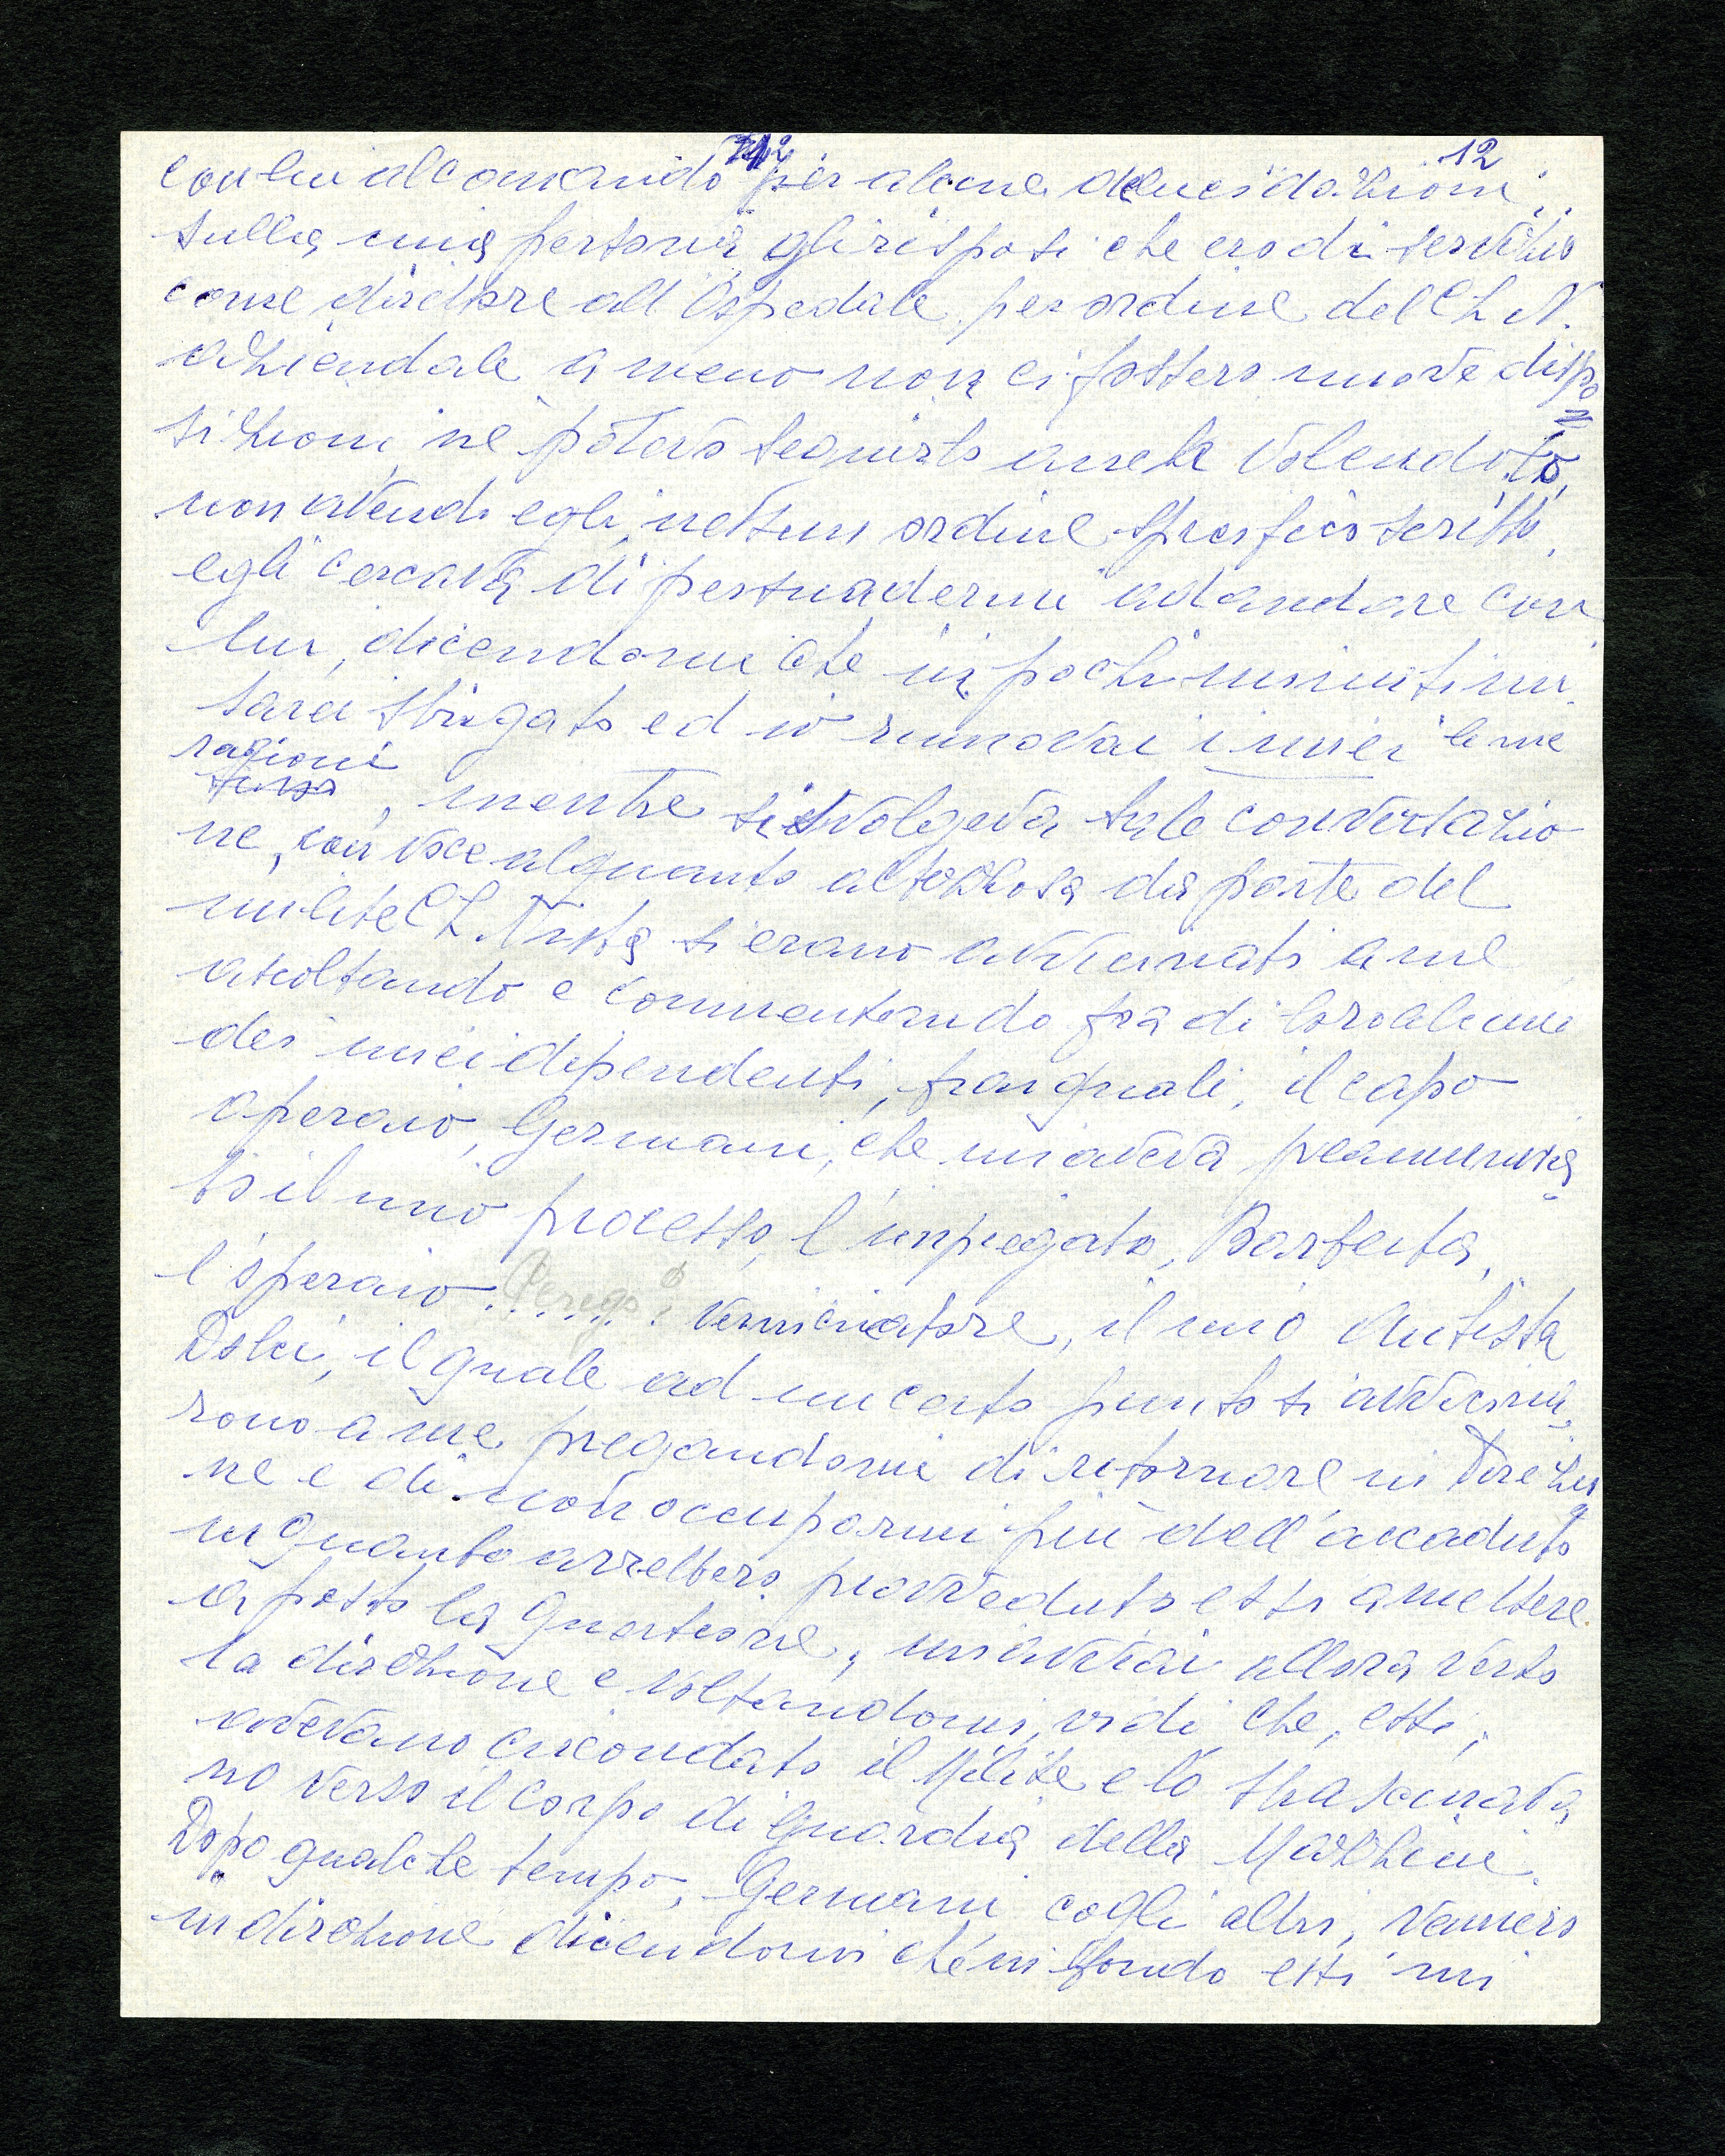 12
con lui al comando per alcune delucidazioni,
sulla mia persona gli risposi che ero di servizio
come direttore all'Ospedale per ordine del C L N.
aziendale a meno non ci fossero nuove dispo
sizioni, nè potevo seguirlo anche volendolo,
non avendo egli nessun ordine specifico scritto,
egli cercava di persuadermi ad andare con
lui, dicendomi che in pochi minuti mi
sarei sbrigato ed io rinnovai i miei le mie
ragioni
, mentre si svolgeva tale conversazio
ne, con voce alquanto altezzosa da parte del
milite C L Nista si erano avvicinati a me
ascoltando e commentando fra di loro alcuni
dei miei dipendenti, fra i quali, il capo
operaio, Germani, che mi aveva preannunzia
to il mio processo, l'impiegato, Barberta,
l'operaio Perego verniciatore, il mio autista
Dolci, il quale ad un certo punto si avvicina
rono a me pregandomi di ritornare in Direzio
ne e di non occuparmi più dell'accaduto
in quanto avrebbero provveduto essi a mettere
a posto la questione, mi avviai allora verso
la direzione e voltandomi, vidi che, essi,
avevano circondato il Milite e lo trascinava
no verso il corpo di guardia della Marchini.
Dopo qualche tempo, Germani cogli altri, vennero
in direzione dicendomi che in fondo essi mi